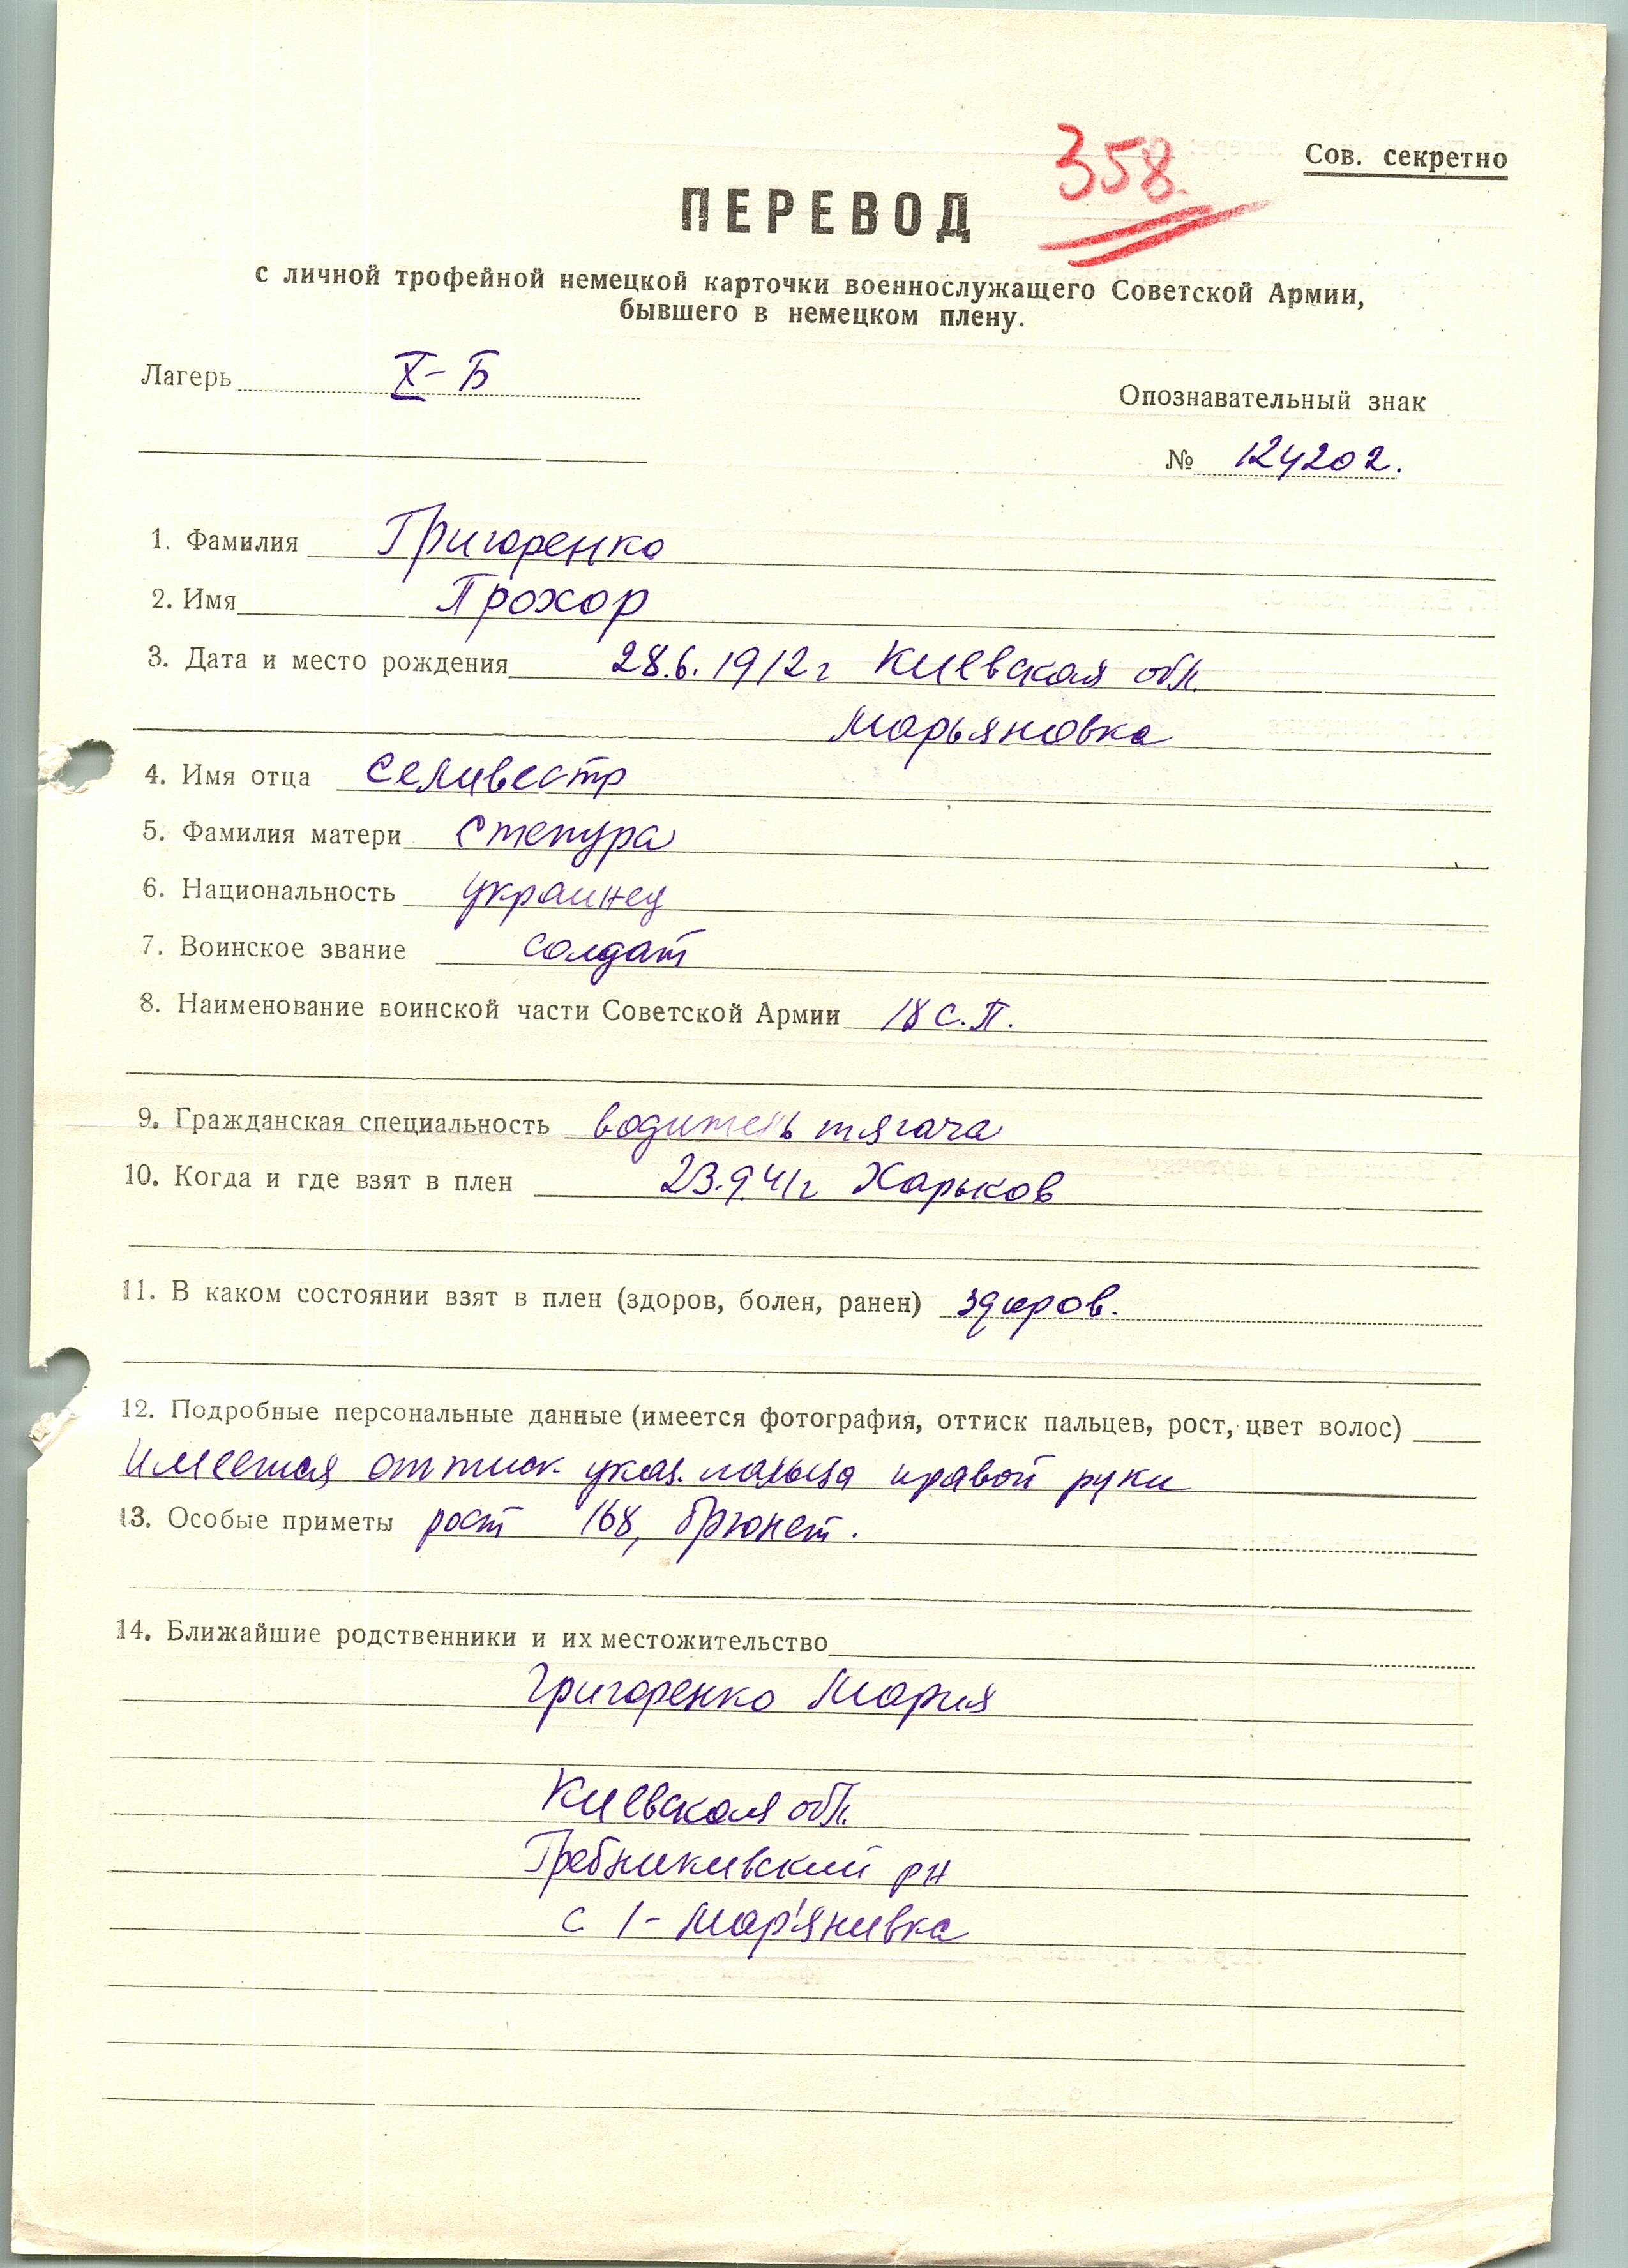 358.
Сов. секретно
ПЕРЕВОД
с личной трофейной немецкой карточки военнослужащего Советской Армии,
бывшего в немецком плену.
Лагерь X-Б
Опознавательный знак
№ 124202.
1. Фамилия Григоренко
2. Имя Прохор
3. Дата и место рождения 28.6.1912г Киевская обл.
Марьяновка
4. Имя отца Селивестр
5. Фамилия матери Степура
6. Национальность украинец
7. Воинское звание солдат
8. Наименование воинской части Советской Армии 18 с.п.
9. Гражданская специальность водитель тягача
10. Когда и где взят в плен 23.9.41г Харьков
11. В каком состоянии взят в плен (здоров, болен, ранен) здоров.
12. Подробные персональные данные (имеется фотография, оттиск пальцев, рост, цвет волос)
Имеется оттиск указ. пальца правой руки
13. Особые приметы рост 168, брюнет.
14. Ближайшие родственники и их местожительство
Григоренко Мария
Киевская обл.
Гребникивский рн
с 1- Мар'янивка